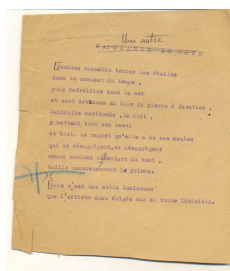 Une autre
[Fondues ensemble toutes les étoiles
dans le creuset du temps,
puis refroidies dans la mer
et sont devenues un bloc de pierre à facettes.
Lapidaire moribonde, la nuit,
y mettant tout son coeur
et tout le regret qu'elle a de ses meules
qui se désagrègent, se désagrègent
comme cendres au contact du vent,
taille amoureusement le prisme.
[Mais c'est une stèle lumineuse
que l'artiste aura érigée sur sa tombe invisible.